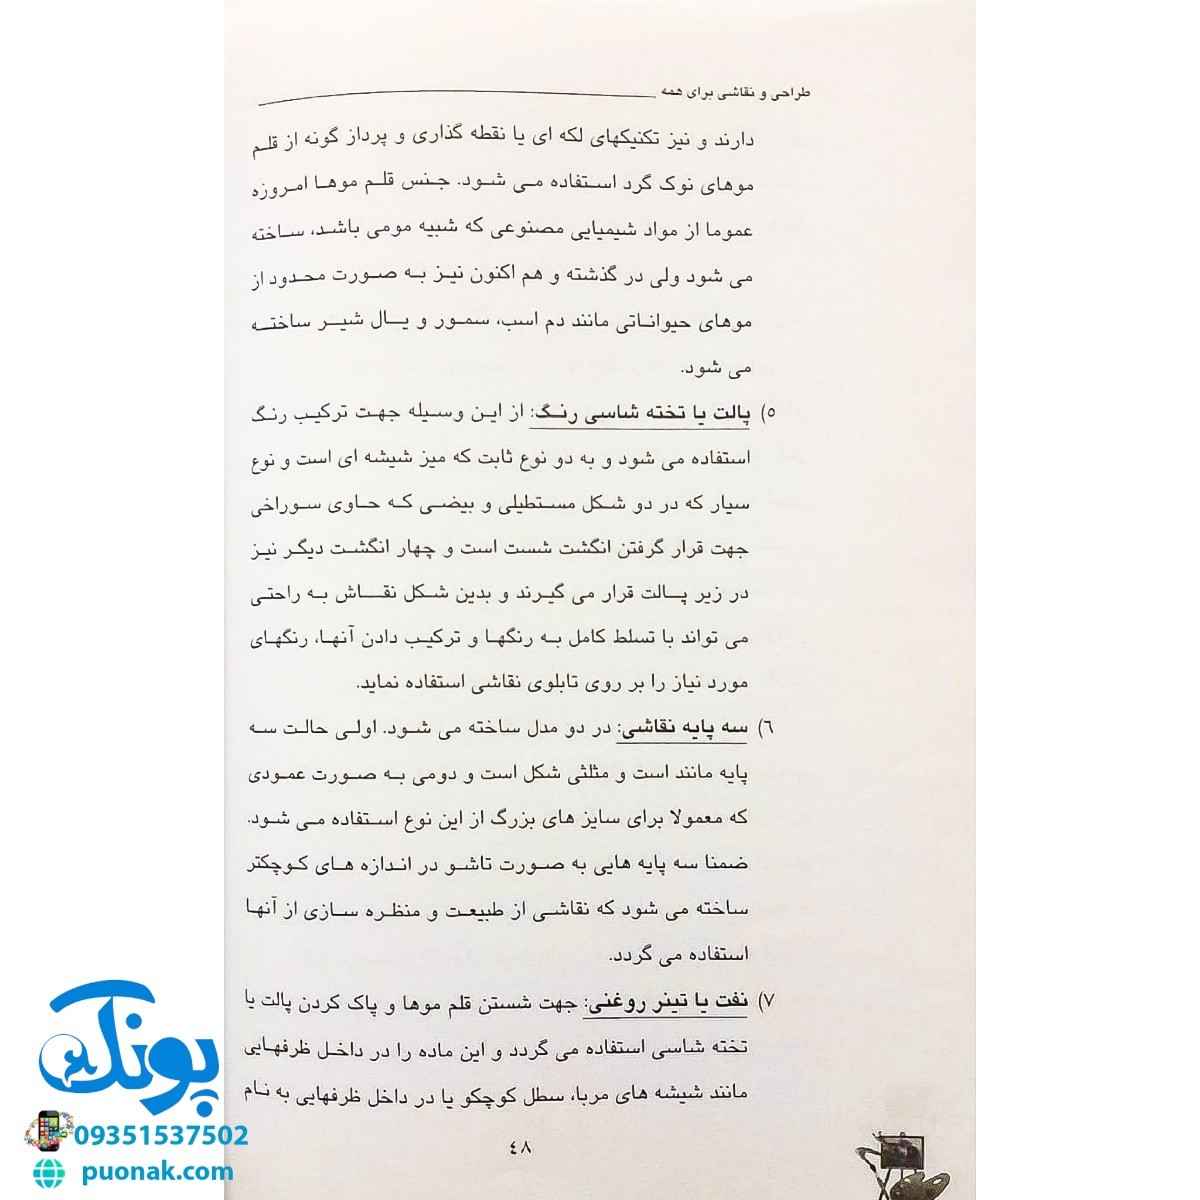 طراحی و نقاشی برای همه
دارند و نیز تکنیکهای لکه ای یا نقطه گذاری و پرداز گونه از قلم
موهای نوک گرد استفاده می شود. جنس قلم موها امروزه
عموما از مواد شیمیایی مصنوعی که شبیه مومی باشد، ساخته
می شود ولی در گذشته و هم اکنون نیز به صورت محدود از
موهای حیواناتی مانند دم اسب، سمور و یال شیر ساخته
می شود.
۵) پالت یا تخته شاسی رنگ: از این وسیله جهت ترکیب رنگ
استفاده می شود و به دو نوع ثابت که میز شیشه ای است و نوع
سیار که در دو شکل مستطیلی و بیضی که حاوی سوراخی
جهت قرار گرفتن انگشت شست است و چهار انگشت دیگر نیز
در زیر پالت قرار می گیرند و بدین شکل نقاش به راحتی
می تواند با تسلط کامل به رنگها و ترکیب دادن آنها، رنگهای
مورد نیاز را بر روی تابلوی نقاشی استفاده نماید.
۶) سه پایه نقاشی: در دو مدل ساخته می شود. اولی حالت سه
پایه مانند است و مثلثی شکل است و دومی به صورت عمودی
که معمولا برای سایز های بزرگ از این نوع استفاده می شود.
ضمنا سه پایه هایی به صورت تاشو در اندازه های کوچکتر
ساخته می شود که نقاشی از طبیعت و منظره سازی از آنها
استفاده می گردد.
۷) نفت یا تینر روغنی: جهت شستن قلم موها و پاک کردن پالت یا
تخته شاسی استفاده می گردد و این ماده را در داخل ظرفهایی
مانند شیشه های مربا، سطل کوچکو یا در داخل ظرفهایی به نام
۴۸
پونک
09351537502
puonak.com